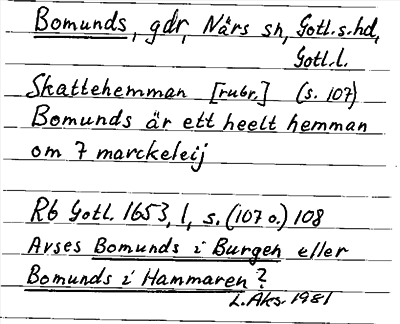 Bomunds, gdr, Närs sn, Gotl.s.hd,
Gotl.l.
Skattehemman [rubr.] (s. 107)
Bomunds är ett heelt hemman
om 7 marckeleij
Rb Gotl. 1653, 1, s. (107 o.) 108
Avses Bomunds i Burgen eller
Bomunds i Hammaren?
L.Aks. 1981